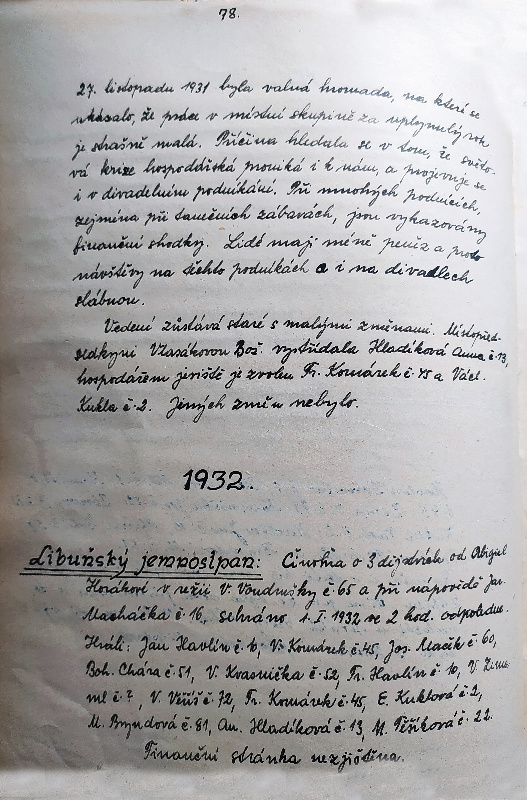 78.
27. listopadu 1931 byla valná hromada, na které se
ukázalo, že práce v místní skupině za uplynulý rok
je strašně malá. Příčina hledala se v tom, že světo-
vá krize hospodářská proniká i k nám, a projevuje se
i v divadelním podnikání. Při mnohých podnicích,
zejména při tanečních zábavách, jsou vykazovány
finanční shodky. Lidé mají méně peněz a proto
návštěvy na těchto podnikách a i na divadlech
slábnou.
Vedení zůstává staré s malými změnami. Místopřed-
sedkyni Vlasákovou Bož. vystřídala Hladíková Anna č 13,
hospodářem jeviště je zvolen Fr. Komárek č 45 a Václ.
Kukla č. 2. Jiných změn nebylo.
1932.
Libuňský jemnostpán: Činohra o 3 dějstvích od Abigail
Horákové v režii V. Voudrušky č 65 a při nápovědě Jar.
Macháčka č 16, sehráno 1. I. 1932 ve 2 hod. odpoledne.
Hráli: Jan Havlín č 6, V. Komárek č 45, Jos. Mačík č 60,
Boh. Chára č 51, V. Kvasnička č 52, Fr. Havlín č 10, V.
ml č ?, V. Veriš č 72, Fr. Komárek č 45, E. Kuklová č 2,
M. Bryndová č 81, An. Hladíková č 13, M. Pěšíková č 22.
Finanční stránka nezjištěna.